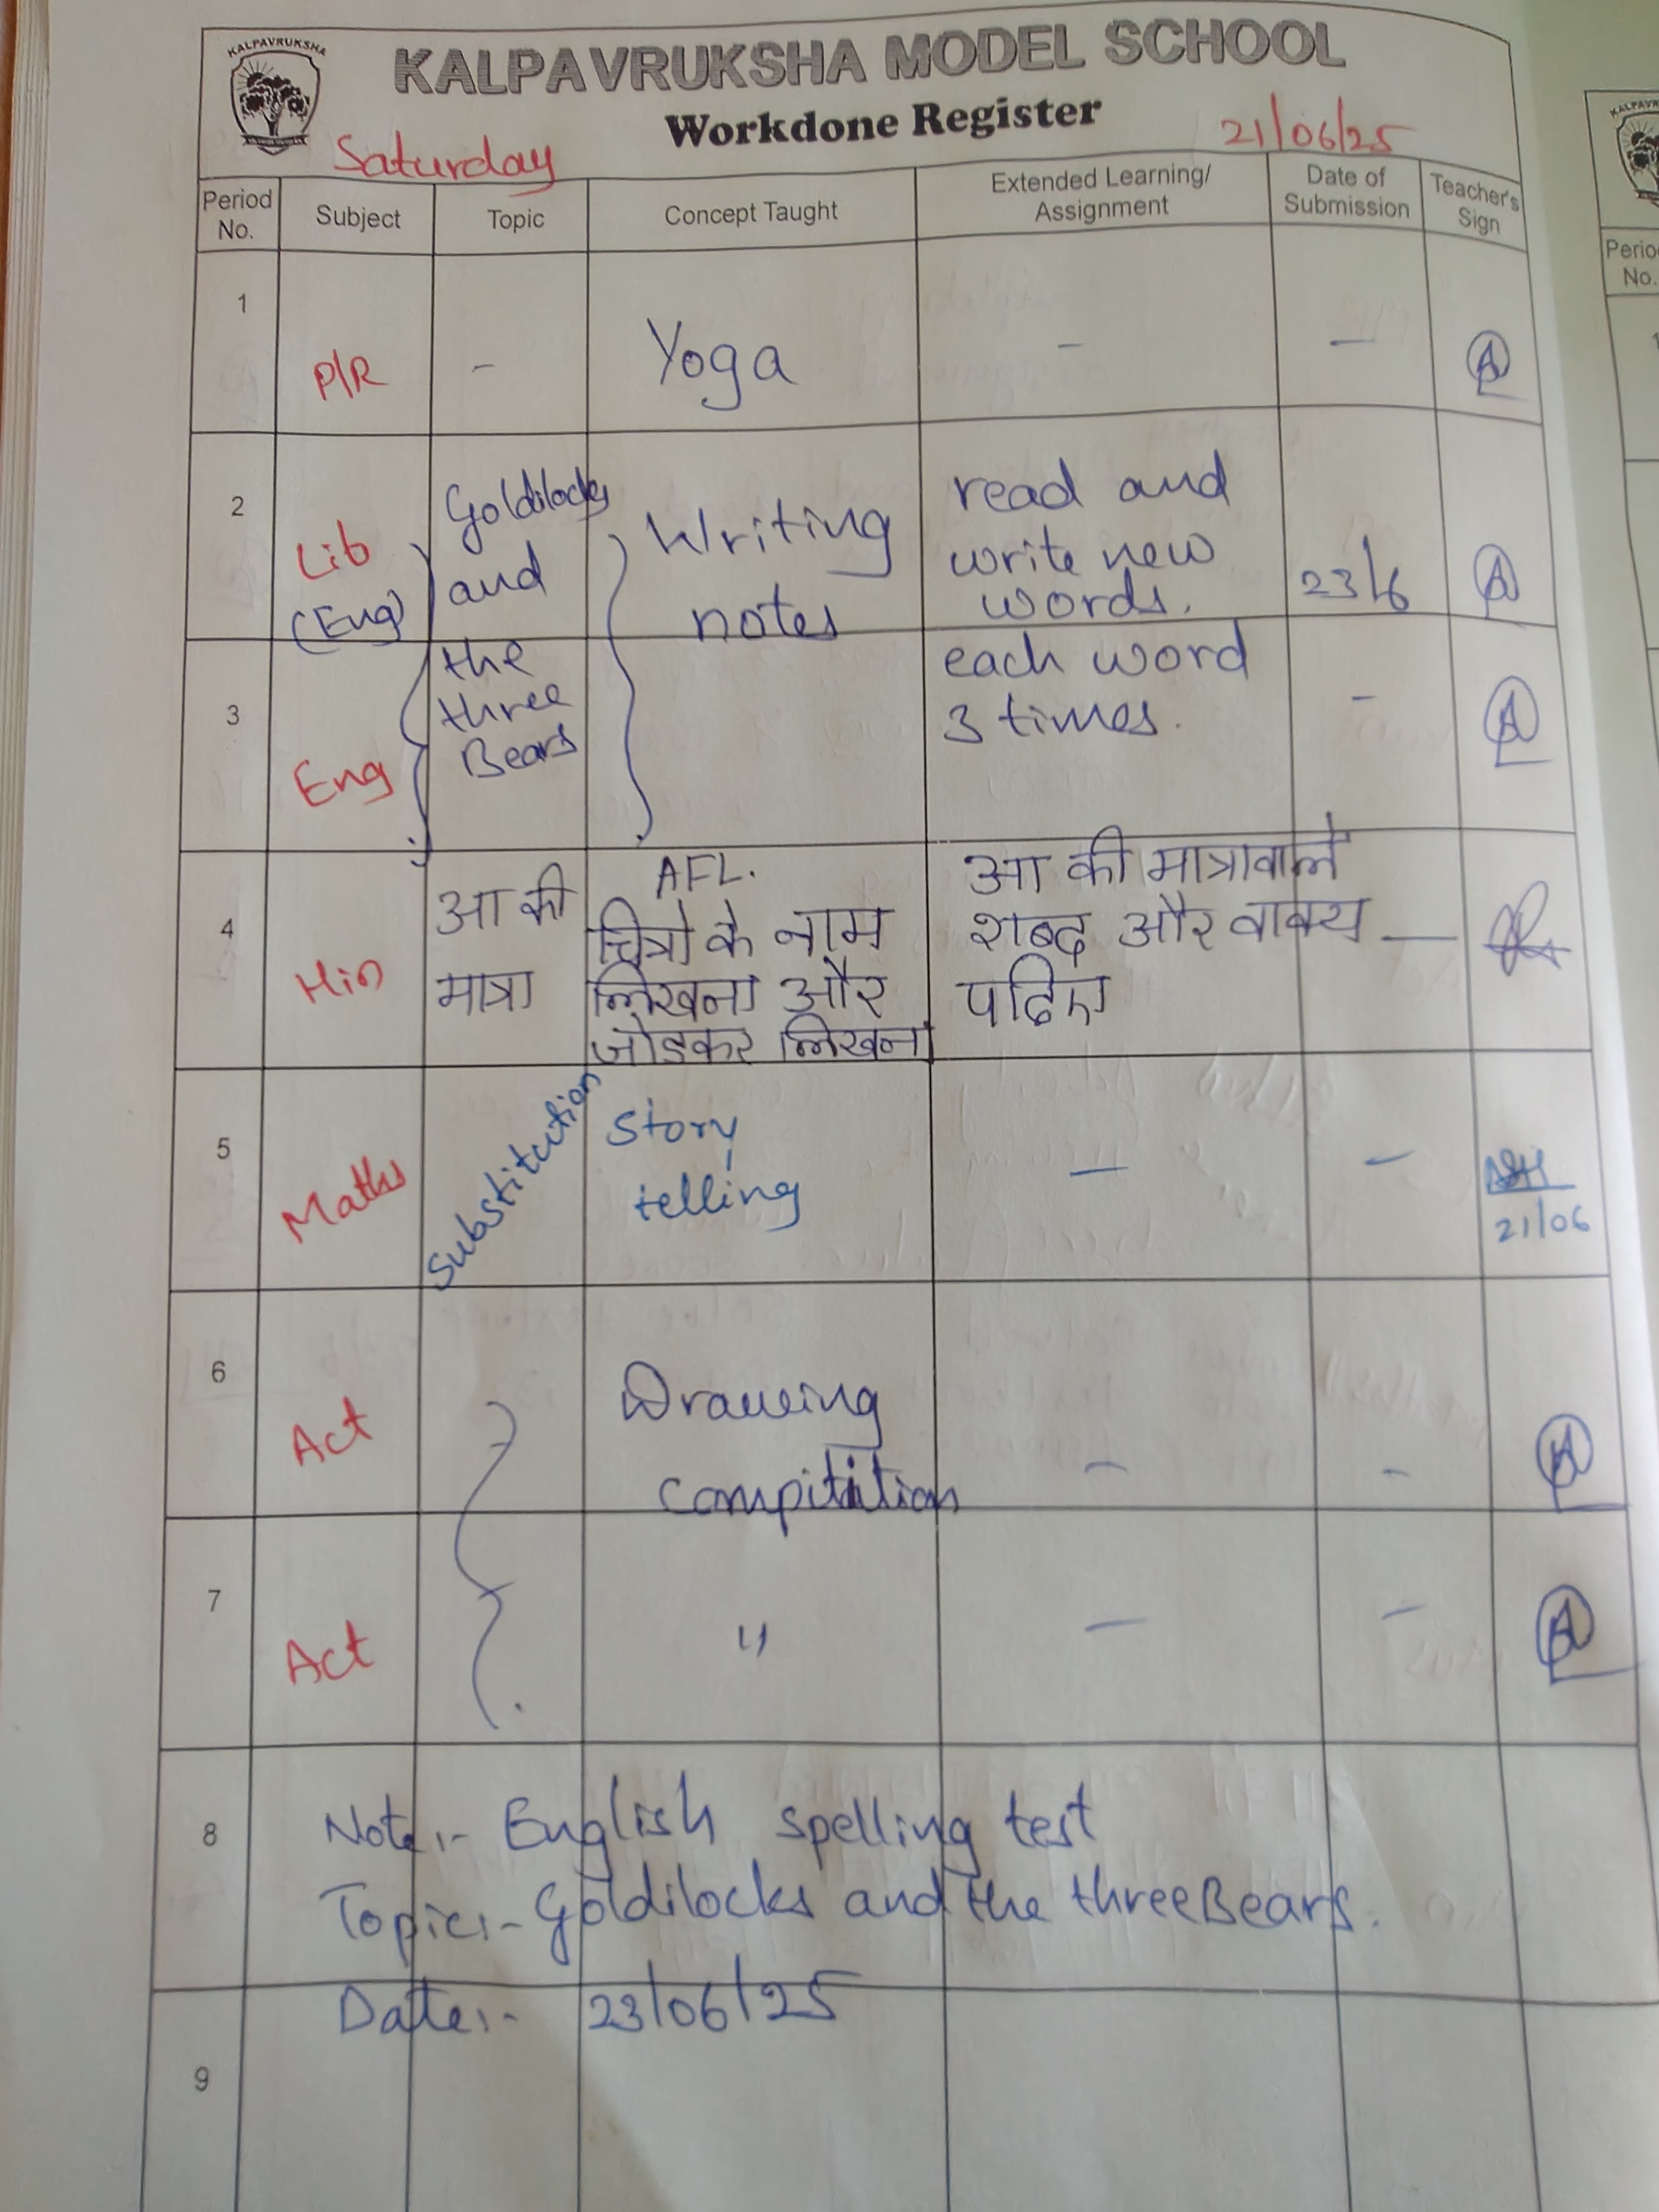 KALPAVRUKSHA
KALPAVRUKSHA MODEL SCHOOL
Workdone Register
Saturday
21/06/25
Period No.
Subject
Topic
Concept Taught
Extended Learning/
Assignment
Date of
Submission
Teacher's
Sign
1
P/R
-
Yoga
-
-
2
Lib
(Eng)
Goldilocks
and
Writing
notes
read and
write new
words.
23/6
3
Eng
the
three
Bears
each word
3 times.
-
4
Hin
आ की
मात्रा
AFL.
चित्रो के नाम
लिखना और
जोडकर लिखना
आ की मात्रावाले
शब्द और वाक्य
पढिए
—
5
Maths
Substitution
Story
telling
-
-
21/06
6
Act
Drawing
compitition
-
-
7
Act
"
-
-
8
Note:- English spelling test
Topic:- Goldilocks and the three Bears.
Date:- 23/06/25
9
Perio
No.